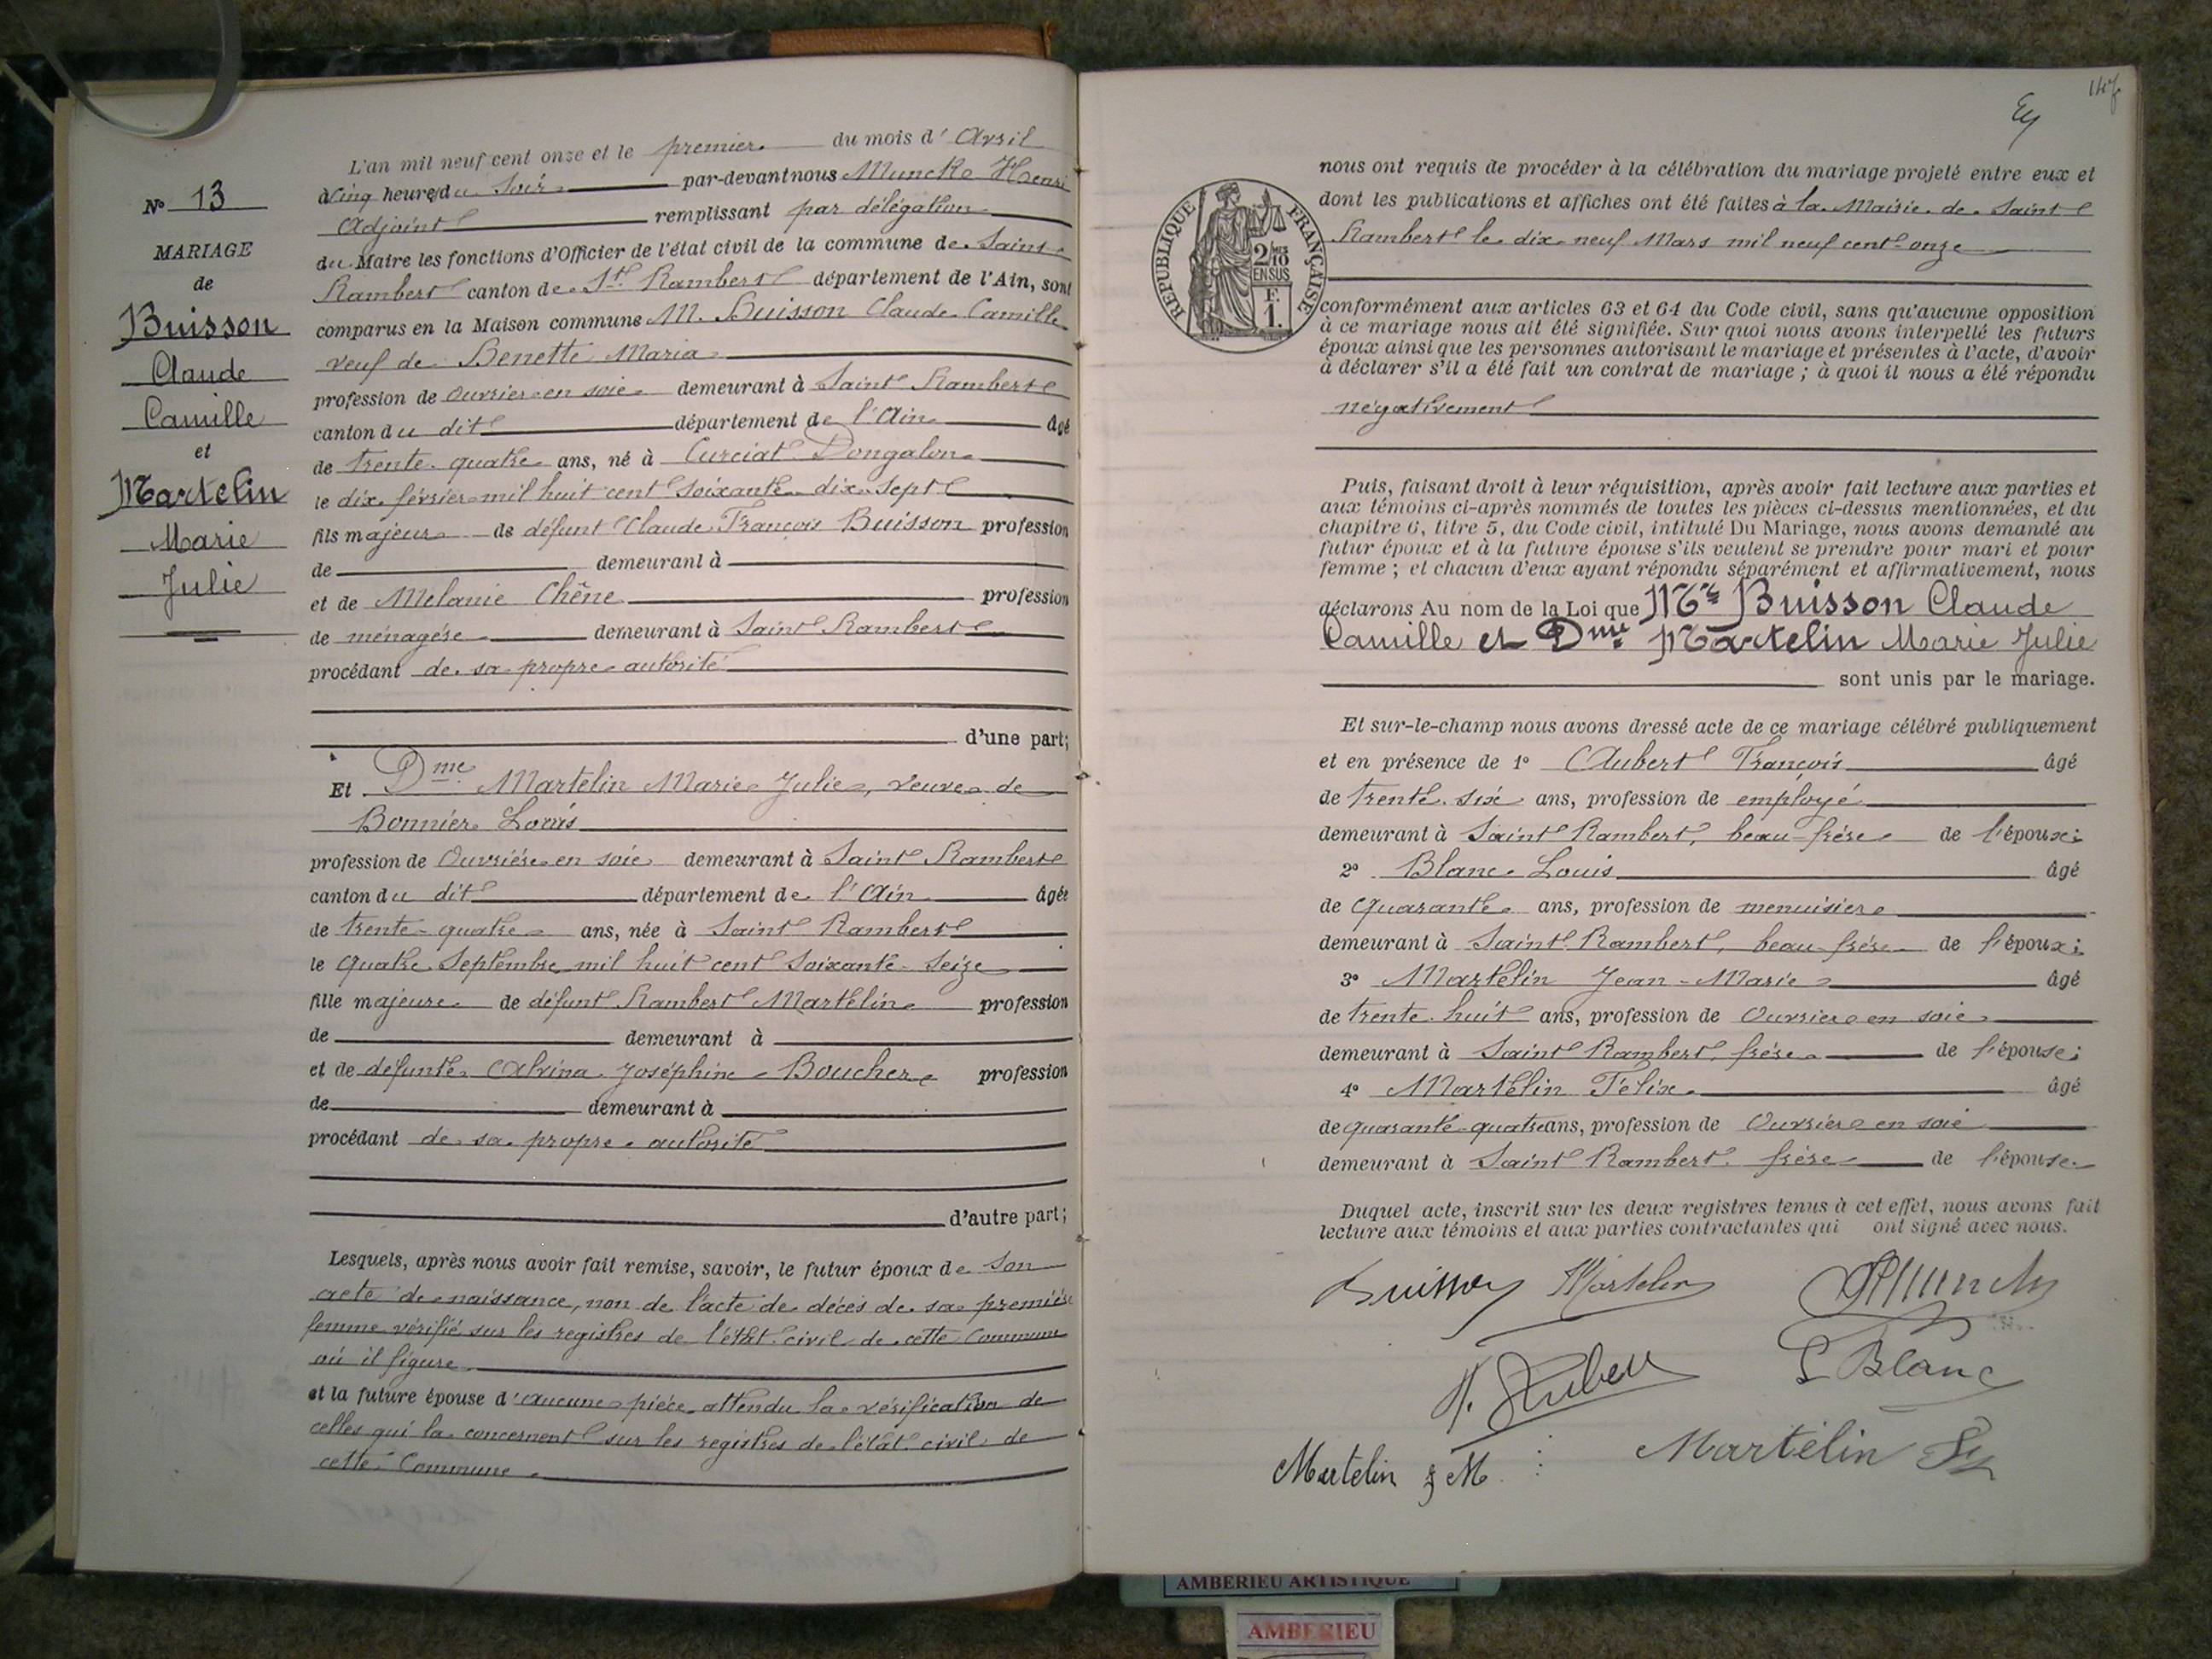 N° 13
MARIAGE
de
Buisson
Claude
Camille
et
Martelin
Marie
Julie
L'an mil neuf cent onze et le premier du mois d'Avril
à cinq heures du soir par-devant nous Munck Henri
Adjoint remplissant par délégation
du Maire les fonctions d'Officier de l'état civil de la commune de Saint
Rambert canton de St Rambert département de l'Ain, sont
comparus en la Maison commune M. Buisson Claude Camille
veuf de Benette Maria
profession de Ouvrier en soie demeurant à Saint Rambert
canton du dit département de l'Ain âgé
de trente-quatre ans, né à Curciat Dongalon
le dix février mil huit cent soixante dix-sept
fils majeur de défunt Claude François Buisson profession
de demeurant à
et de Mélanie Chêne profession
de ménagère demeurant à Saint Rambert
procédant de sa propre autorité
d'une part;
Et Dme Martelin Marie Julie, veuve de
Bonnier Louis
profession de Ouvrière en soie demeurant à Saint Rambert
canton du dit département de l'Ain âgée
de trente-quatre ans, née à Saint Rambert
le quatre Septembre mil huit cent soixante-seize
fille majeure de défunt Rambert Martelin profession
de demeurant à
et de défunte Alvina Joséphine Boucher profession
de demeurant à
procédant de sa propre autorité
d'autre part;
Lesquels, après nous avoir fait remise, savoir, le futur époux de son
acte de naissance, non de l'acte de décès de sa première
femme vérifié sur les registres de l'état civil de cette Commune
où il figure
et la future épouse d'aucune pièce attendu la vérification de
celles qui la concernent sur les registres de l'état civil de
cette Commune.
147
nous ont requis de procéder à la célébration du mariage projeté entre eux et
dont les publications et affiches ont été faites à la Mairie de Saint
Rambert le dix neuf Mars mil neuf cent onze
RÉPUBLIQUE FRANÇAISE
2/10
EN SUS
F.
1.
conformément aux articles 63 et 64 du Code civil, sans qu'aucune opposition
à ce mariage nous ait été signifiée. Sur quoi nous avons interpellé les futurs
époux ainsi que les personnes autorisant le mariage et présentes à l'acte, d'avoir
à déclarer s'il a été fait un contrat de mariage ; à quoi il nous a été répondu
négativement
Puis, faisant droit à leur réquisition, après avoir fait lecture aux parties et
aux témoins ci-après nommés de toutes les pièces ci-dessus mentionnées, et du
chapitre 6, titre 5, du Code civil, intitulé Du Mariage, nous avons demandé au
futur époux et à la future épouse s'ils veulent se prendre pour mari et pour
femme ; et chacun d'eux ayant répondu séparément et affirmativement, nous
déclarons Au nom de la Loi que Mr Buisson Claude
Camille et Dme Martelin Marie Julie
sont unis par le mariage.
Et sur-le-champ nous avons dressé acte de ce mariage célébré publiquement
et en présence de 1° Aubert François âgé
de trente-six ans, profession de employé
demeurant à Saint Rambert, beau-frère de l'époux;
2° Blanc Louis âgé
de quarante ans, profession de menuisier
demeurant à Saint Rambert, beau-frère de l'époux;
3° Martelin Jean-Marie âgé
de trente-huit ans, profession de Ouvrier en soie
demeurant à Saint Rambert, frère de l'épouse;
4° Martelin Félix âgé
de quarante-quatre ans, profession de Ouvrier en soie
demeurant à Saint Rambert, frère de l'épouse.
Duquel acte, inscrit sur les deux registres tenus à cet effet, nous avons fait
lecture aux témoins et aux parties contractantes qui ont signé avec nous.
Buisson Martelin HMunck
F. Aubert L Blanc
Martelin J M Martelin
AMBERIEU ARTISTIQUE
AMBERIEU